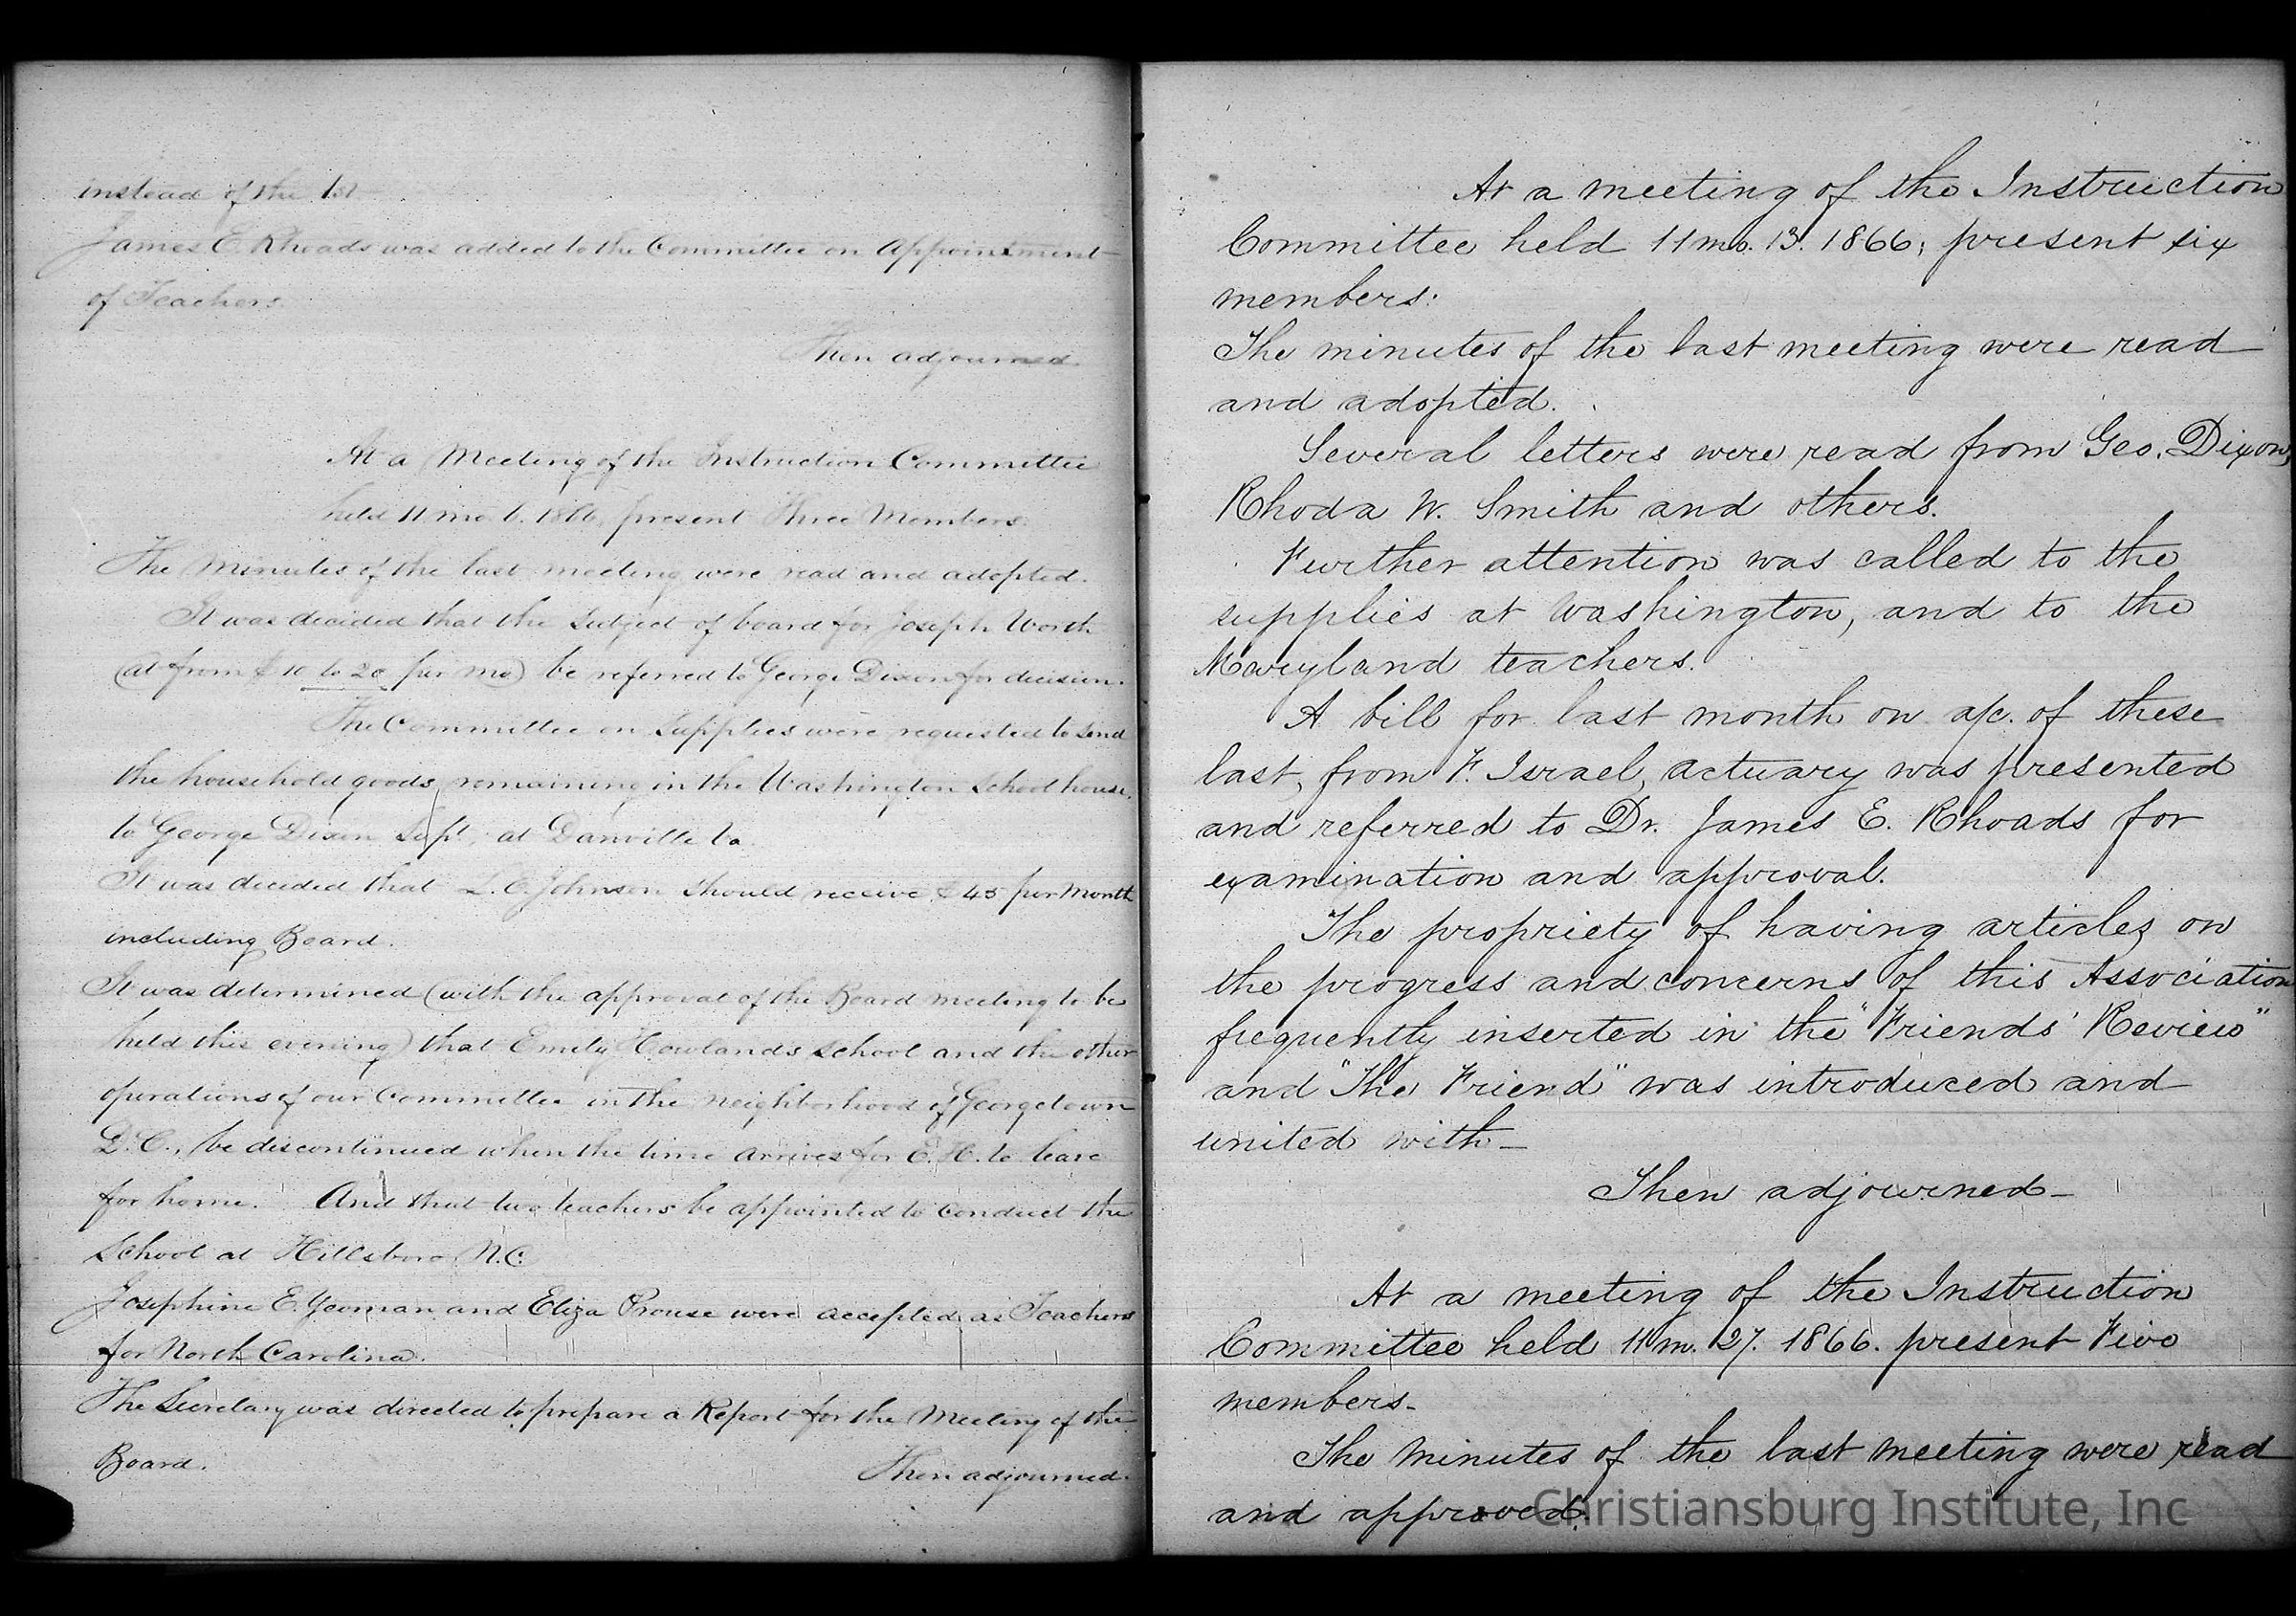 instead of the 1st
James E. Rhoads was added to the Committee on Appointment
of Teachers.
Then adjourned.
At a Meeting of the Instruction Committee
held 11 mo. 6. 1866, present Three Members.
The Minutes of the last meeting were read and adopted.
It was decided that the subject of board for Joseph Worth
(at from $10 to 20 per mo) be referred to George Dixon for decision.
The Committee on Supplies were requested to send
the household goods, remaining in the Washington School house,
to George Dixon Supt, at Danville Va.
It was decided that L. E. Johnson should receive $45 per Month
including Board.
It was determined (with the approval of the Board meeting to be
held this evening) that Emily Howlands School and the other
operations of our Committee in the neighborhood of Georgetown
D.C., be discontinued when the time arrives for E. H. to leave
for home. And that two teachers be appointed to conduct the
School at Hillsboro N.C.
Josephine E. Yeoman and Eliza Prouse were accepted as Teachers
for North Carolina.
The Secretary was directed to prepare a Report for the Meeting of the
Board.
Then adjourned.
At a meeting of the Instruction
Committee held 11 mo. 13. 1866, present six
members:
The minutes of the last meeting were read
and adopted.
Several letters were read from Geo. Dixon,
Rhoda W. Smith and others.
Further attention was called to the
supplies at Washington, and to the
Maryland teachers.
A bill for last month on a/c. of these
last, from F. Israel, actuary was presented
and referred to Dr. James E. Rhoads for
examination and approval.
The propriety of having articles on
the progress and concerns of this Association
frequently inserted in the "Friends' Review"
and "The Friend" was introduced and
united with—
Then adjourned—
At a meeting of the Instruction
Committee held 11 m. 27. 1866. present Five
members—
The minutes of the last meeting were read
and approved.
Christiansburg Institute, Inc